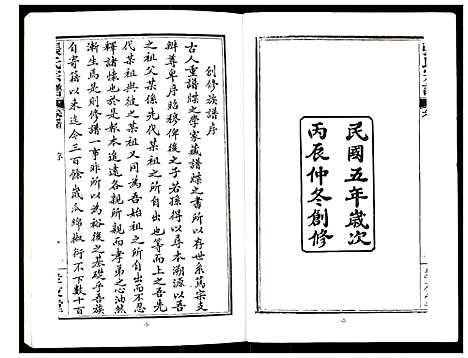 民國五年歲次
丙辰仲冬創修
創修族譜序
古人重譜牒之學家藏譜牒之書所以存世系篤宗支
辨尊卑序昭穆俾後之子若孫得以尋本溯源以吾
之祖父某係先代某祖之所自出也等而上之先
代某祖與彼之某祖又同為吾始祖之所自出而不忍
釋諸懷也於是報本追遠各親所親而孝弟之心油然
漸生焉是則修譜一事非所以為裕後之基礎乎吾族
自寄籍以來迄今三百餘歲瓜綿椒衍不下數十百
序